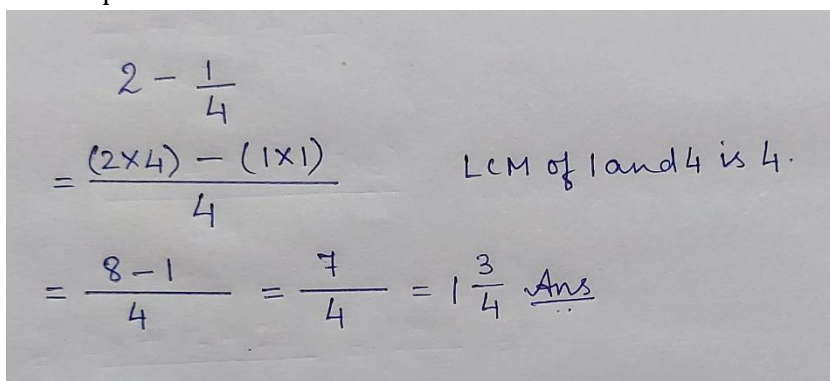 2 - 1/4
= (2×4) - (1×1) / 4 LCM of 1 and 4 is 4.
= 8-1 / 4 = 7/4 = 1 3/4 Ans